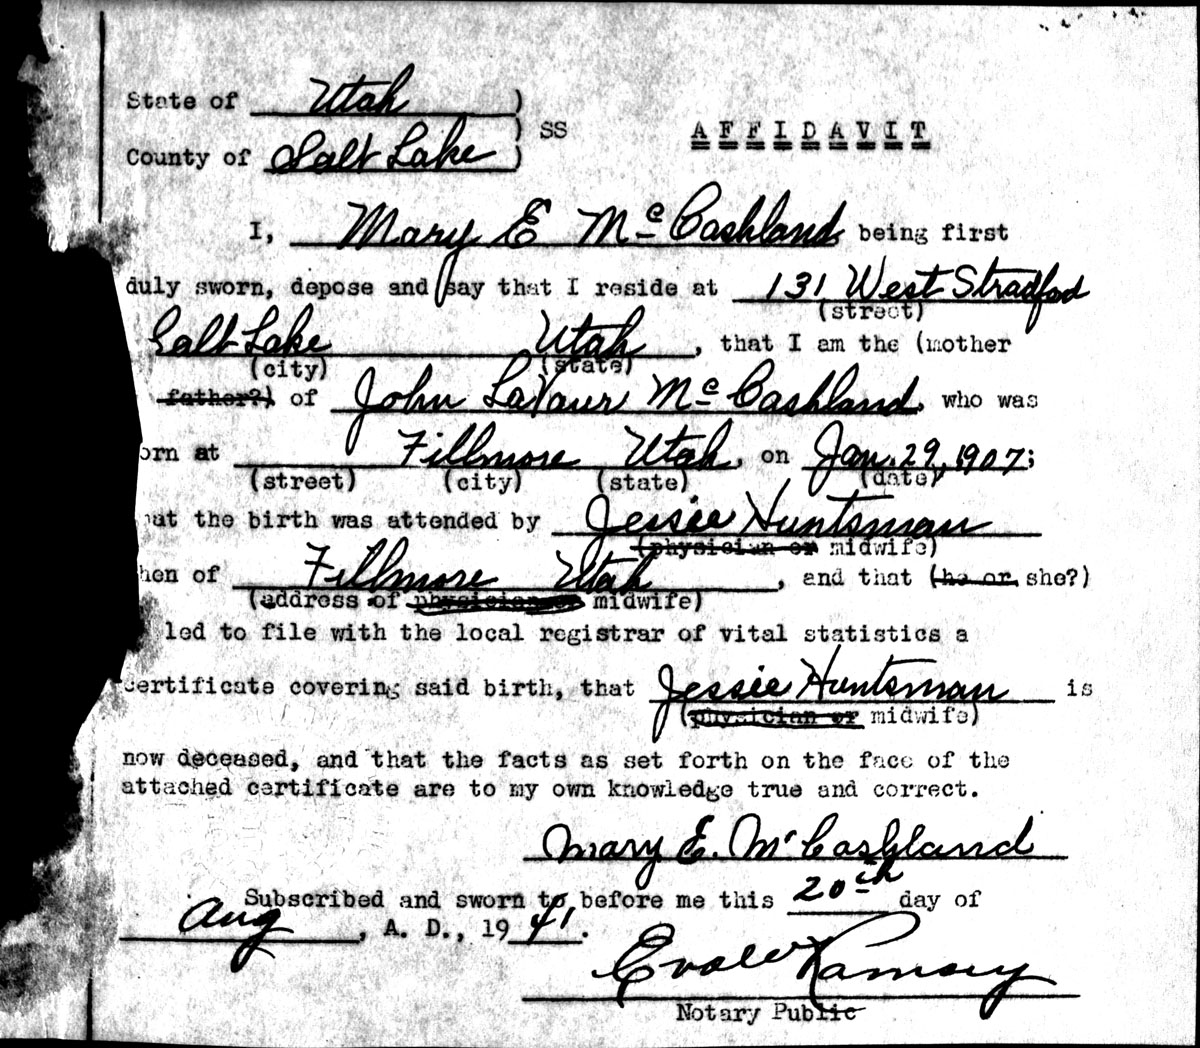 State of Utah )
) SS A F F I D A V I T
County of Salt Lake )
I, Mary E McCashland being first
duly sworn, depose and say that I reside at 131 West Stradford
(street)
Salt Lake Utah, that I am the (mother
(city) (state)
father?) of John LaVaur McCashland, who was
orn at Fillmore Utah, on Jan. 29, 1907;
(street) (city) (state) (date)
at the birth was attended by Jessie Huntsman
(physician or midwife)
hen of Fillmore Utah, and that (he or she?)
(address of physician or midwife)
led to file with the local registrar of vital statistics a
certificate covering said birth, that Jessie Huntsman is
(physician or midwife)
now deceased, and that the facts as set forth on the face of the
attached certificate are to my own knowledge true and correct.
Mary E. McCashland
Subscribed and sworn to before me this 20th day of
Aug, A. D., 19 41.
Ramsey
Notary Public